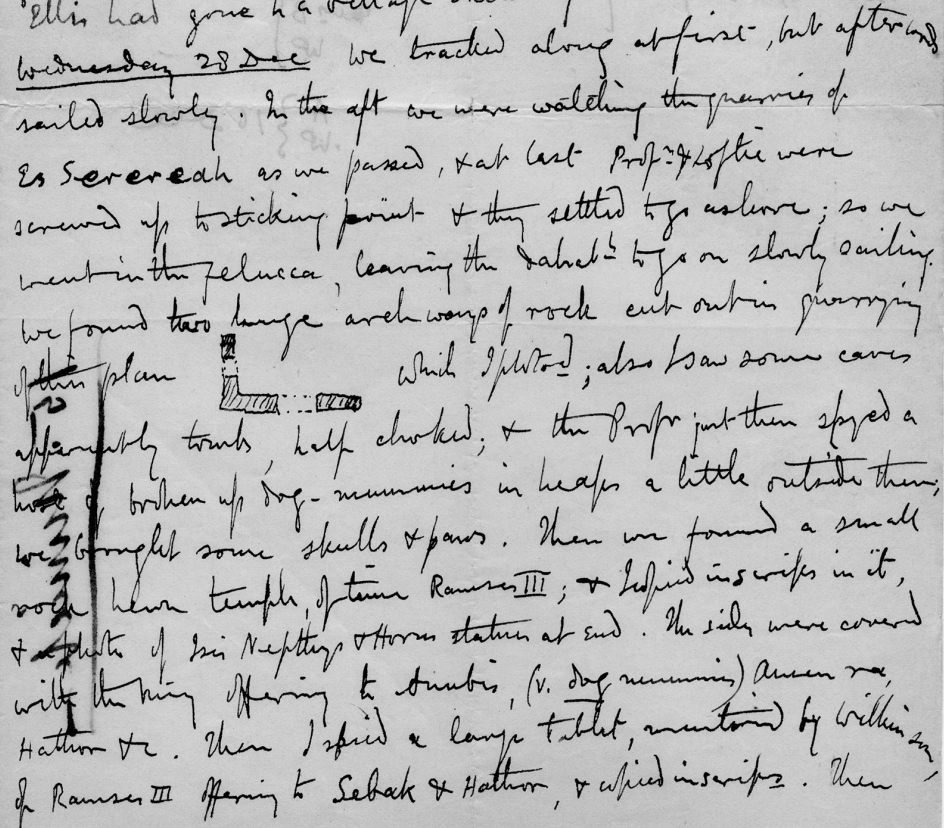 Ellis had gone to a village
Wednesday 28 Dec we tracked along at first, but afterwards
sailed slowly. In the aft we were watching the quarries of
Es Serereah as we passed, & at last Profr. & Loftie were
screwed up to sticking point & they settled to go ashore; so we
went in the felucca, leaving the dahabh to go on slowly sailing.
We found two huge archways of rock cut out in quarrying
of this plan which I plotd; also I saw some caves
apparently tombs, half choked; & the Profr just then spyed a
host of broken up dog-mummies in heaps a little outside them;
we brought some skulls & paws. Then we found a small
rock hewn temple, of time Ramses III; & I copied inscrips in it,
& photo of Isis Nepthys & Horus statues at end. The sides were covered
with the King offering to Anubis, (v. dog mummies) Amen ra,
Hathor &c. Then I spied a large tablet, mentioned by Wilkinson,
of Ramses III offering to Sebak & Hathor, & copied inscrips. Then